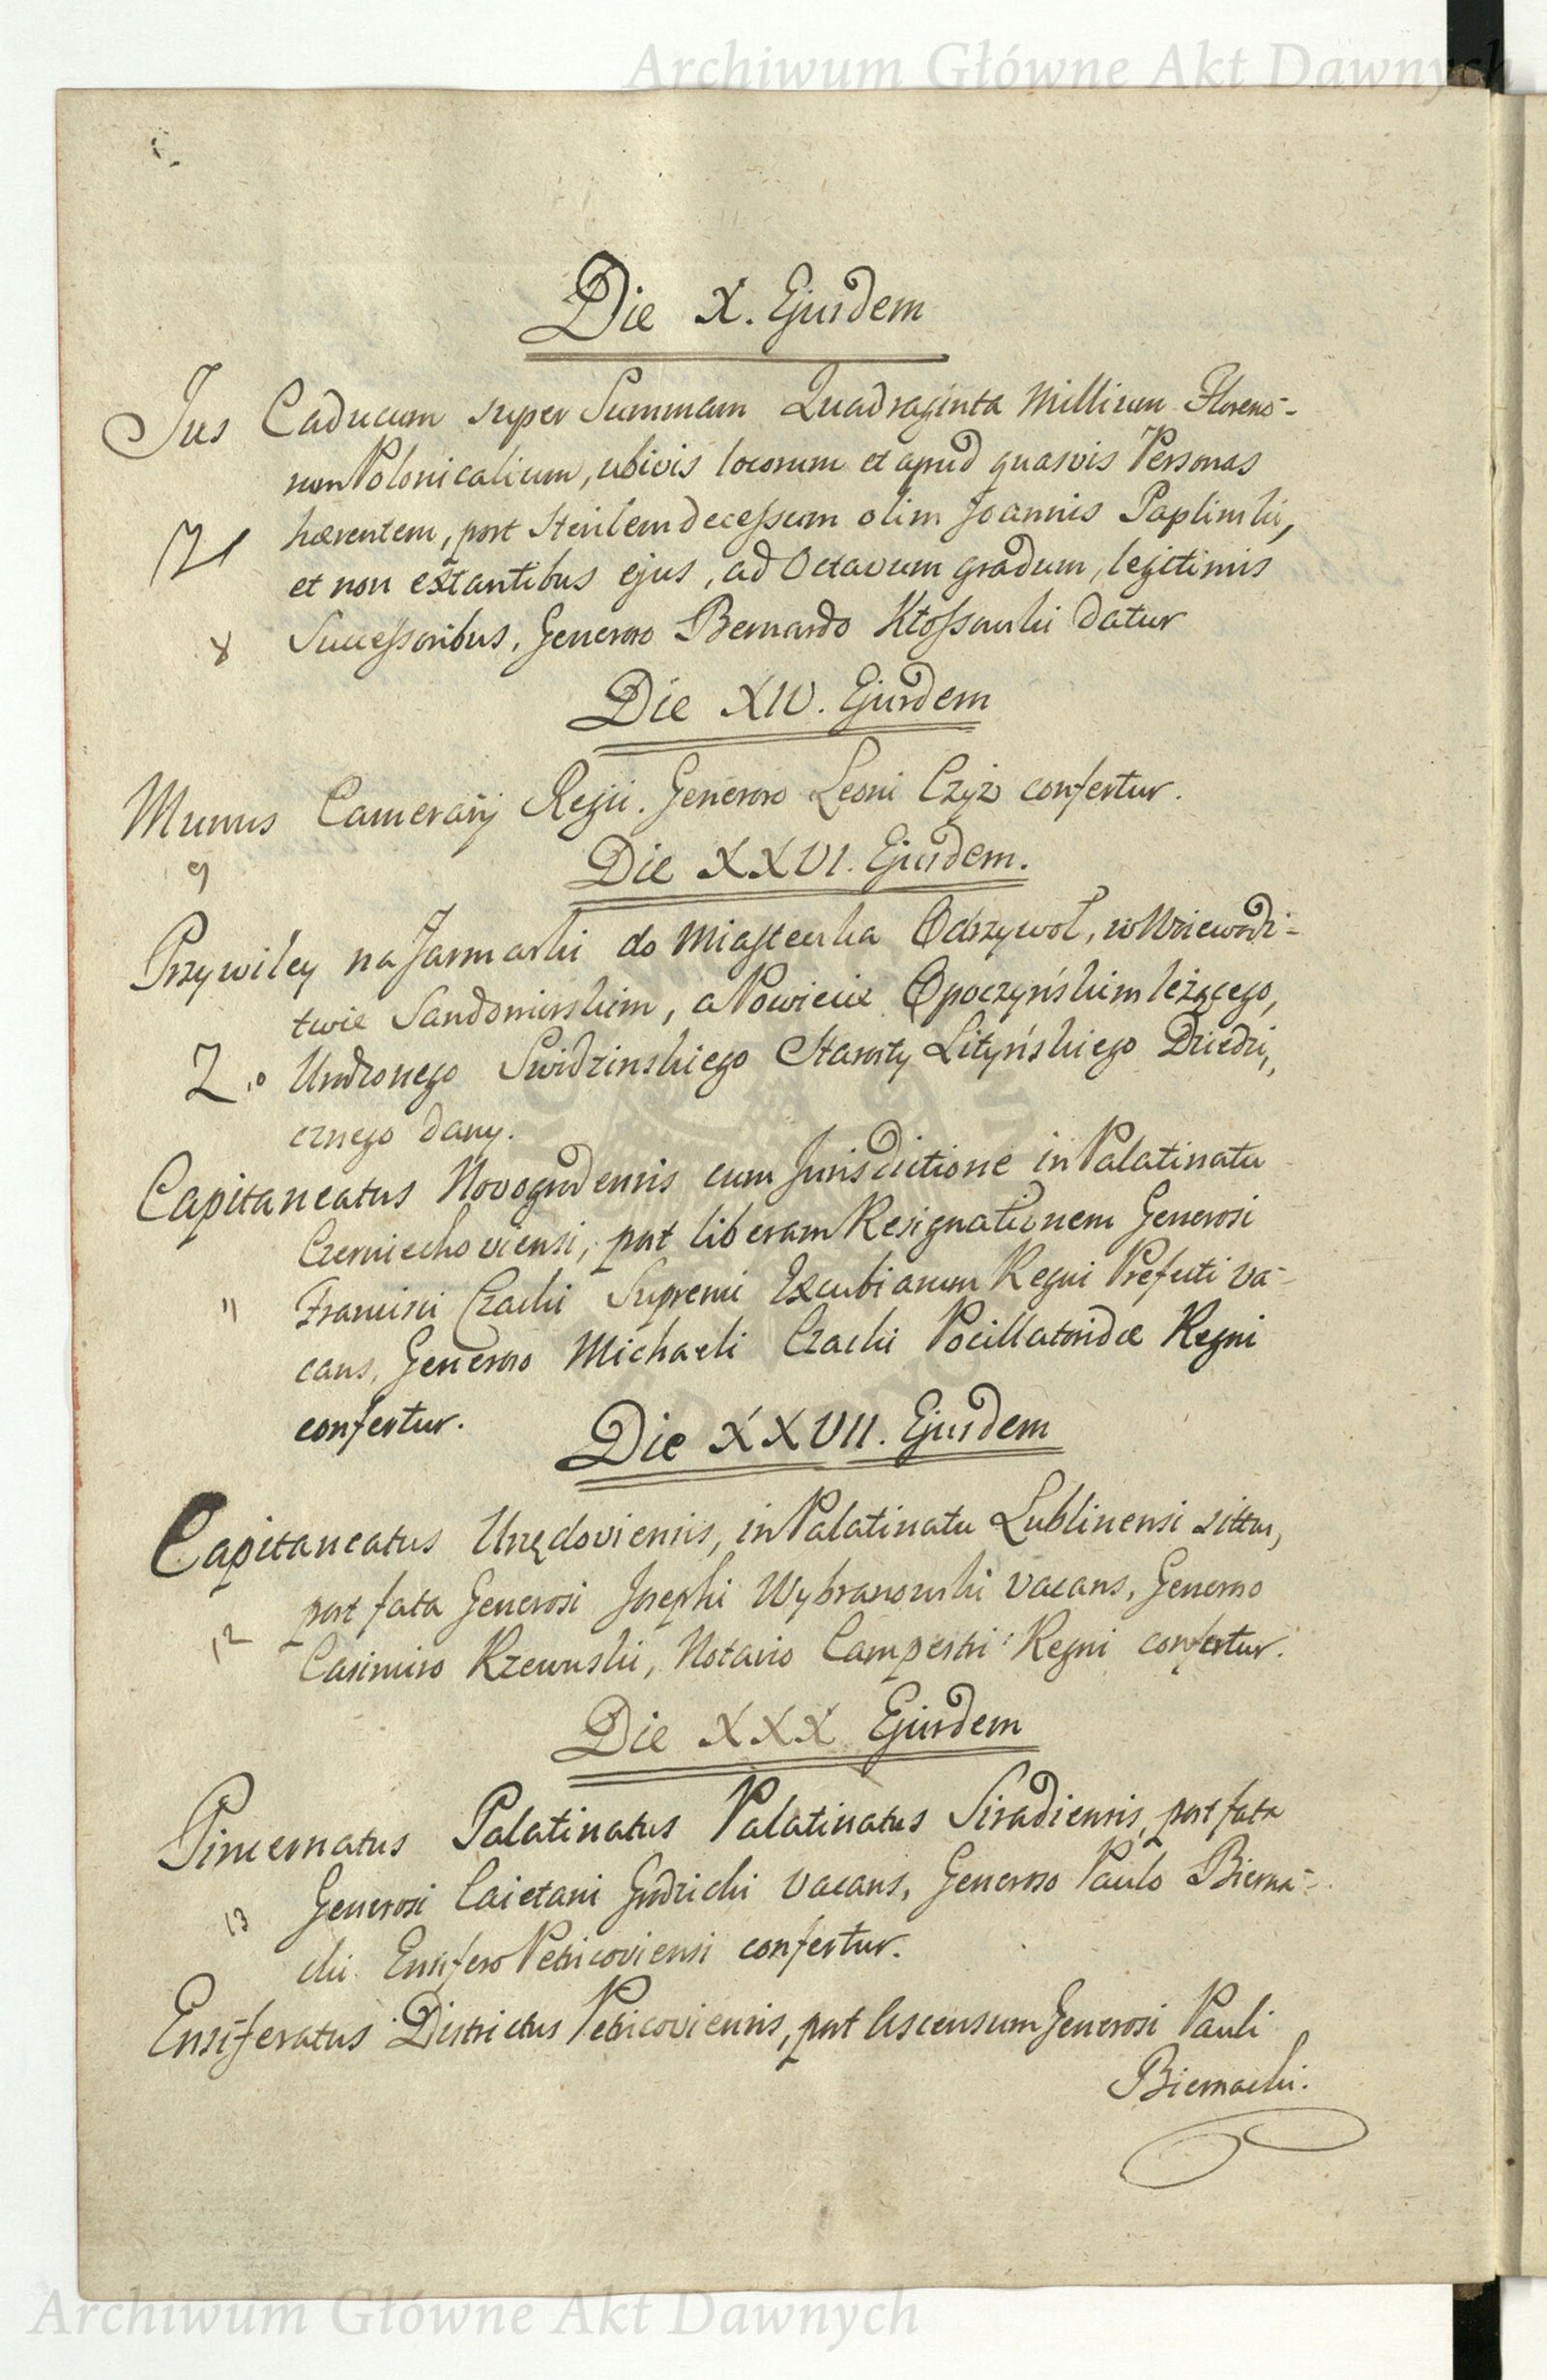 Archiwum Główne Akt Dawnych
Die X. Ejusdem
Jus Caducum super Summam Quadraginta Millium Floreno-
rum Polonicalium, ubivis locorum et apud quasvis Personas
hærentem, post sterilem decessum olim Joannis Paplinski,
et non extantibus ejus, ad Octavum gradum, legitimis
8 Successoribus, Generoso Bernardo Kłossowski datur
Die XIV. Ejusdem
Munus Camerarij Regii. Generoso Leoni Czyż confertur.
9
Die XXVI. Ejusdem.
Przywiley na Jarmarki do Miasteczka Odrzywoł, w Woiewodz-
twie Sandomirskim, a Powiecie Opoczyńskim leżącego,
10 Urodzonego Swidzinskiego Starosty Lityńskiego Dziedzi,,
cznego dany.
Capitaneatus Novogrodensis cum Jurisdictione in Palatinatu
Czerniechoviensi, post liberam Resignationem Generosi
11 Francisci Czacki Supremi Excubiarum Regni Prefecti va-
cans, Generoso Michaeli Czacki Pocillatoridæ Regni
confertur.
Die XXVII. Ejusdem
Capitaneatus Urzędoviensis, in Palatinatu Lublinensi situs,
post fata Generosi Josephi Wybranowski vacans, Generoso
12 Casimiro Rzewuski, Notario Campestri Regni confertur.
Die XXX Ejusdem
Pincernatus Palatinatus Palatinatus Siradiensis, post fata
Generosi Caietani vacans, Generoso Paulo Bierna-
13 cki Ensifero Petricoviensi confertur.
Ensiferatus Districtus Petricoviensis, post Ascensum Generosi Pauli
Biernacki.
Archiwum Główne Akt Dawnych